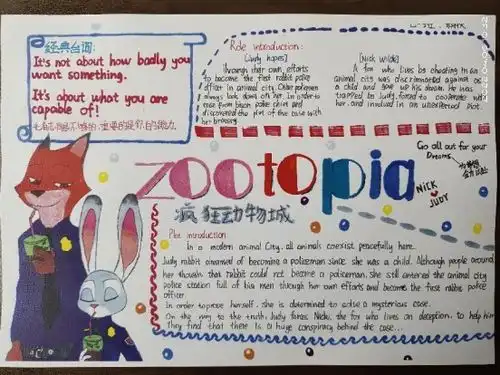 经典台词:
It's not about how badly you
want something.
It's about what you are
capable of!
Role introduction:
[Judy hopes]
Through her own efforts
to become the first rabbit police
officer in animal city. Other policemen
always look down on her. In order to
case from bison police chief and
discovered the plot of the case with
her bravery
[Nick wilde]
A fox who lives by cheating in an
animal city was discriminated against as
a child and gave up his dream. He was
trapped by Judy, forced to cooperate with
her, and involved in an unexpected plot.
Go all out for your
Dreams.
zootopia
疯狂动物城
Nick
JUDY
Plot introduction
In a modern animal City, all animals coexist peacefully here.
Judy rabbit dreamed of becoming a policeman since she was a child. Although people around
her though that rabbit could not become a policeman, she still entered the animal city
police station full of big men through her own efforts and became the first rabbit police
officer.
In order to prove herself, she is determined to solve a mysterious case.
On the way to the truth, Judy forces Nick, the fox who lives on deception, to help him
They find that there is a huge conspiracy behind the case...